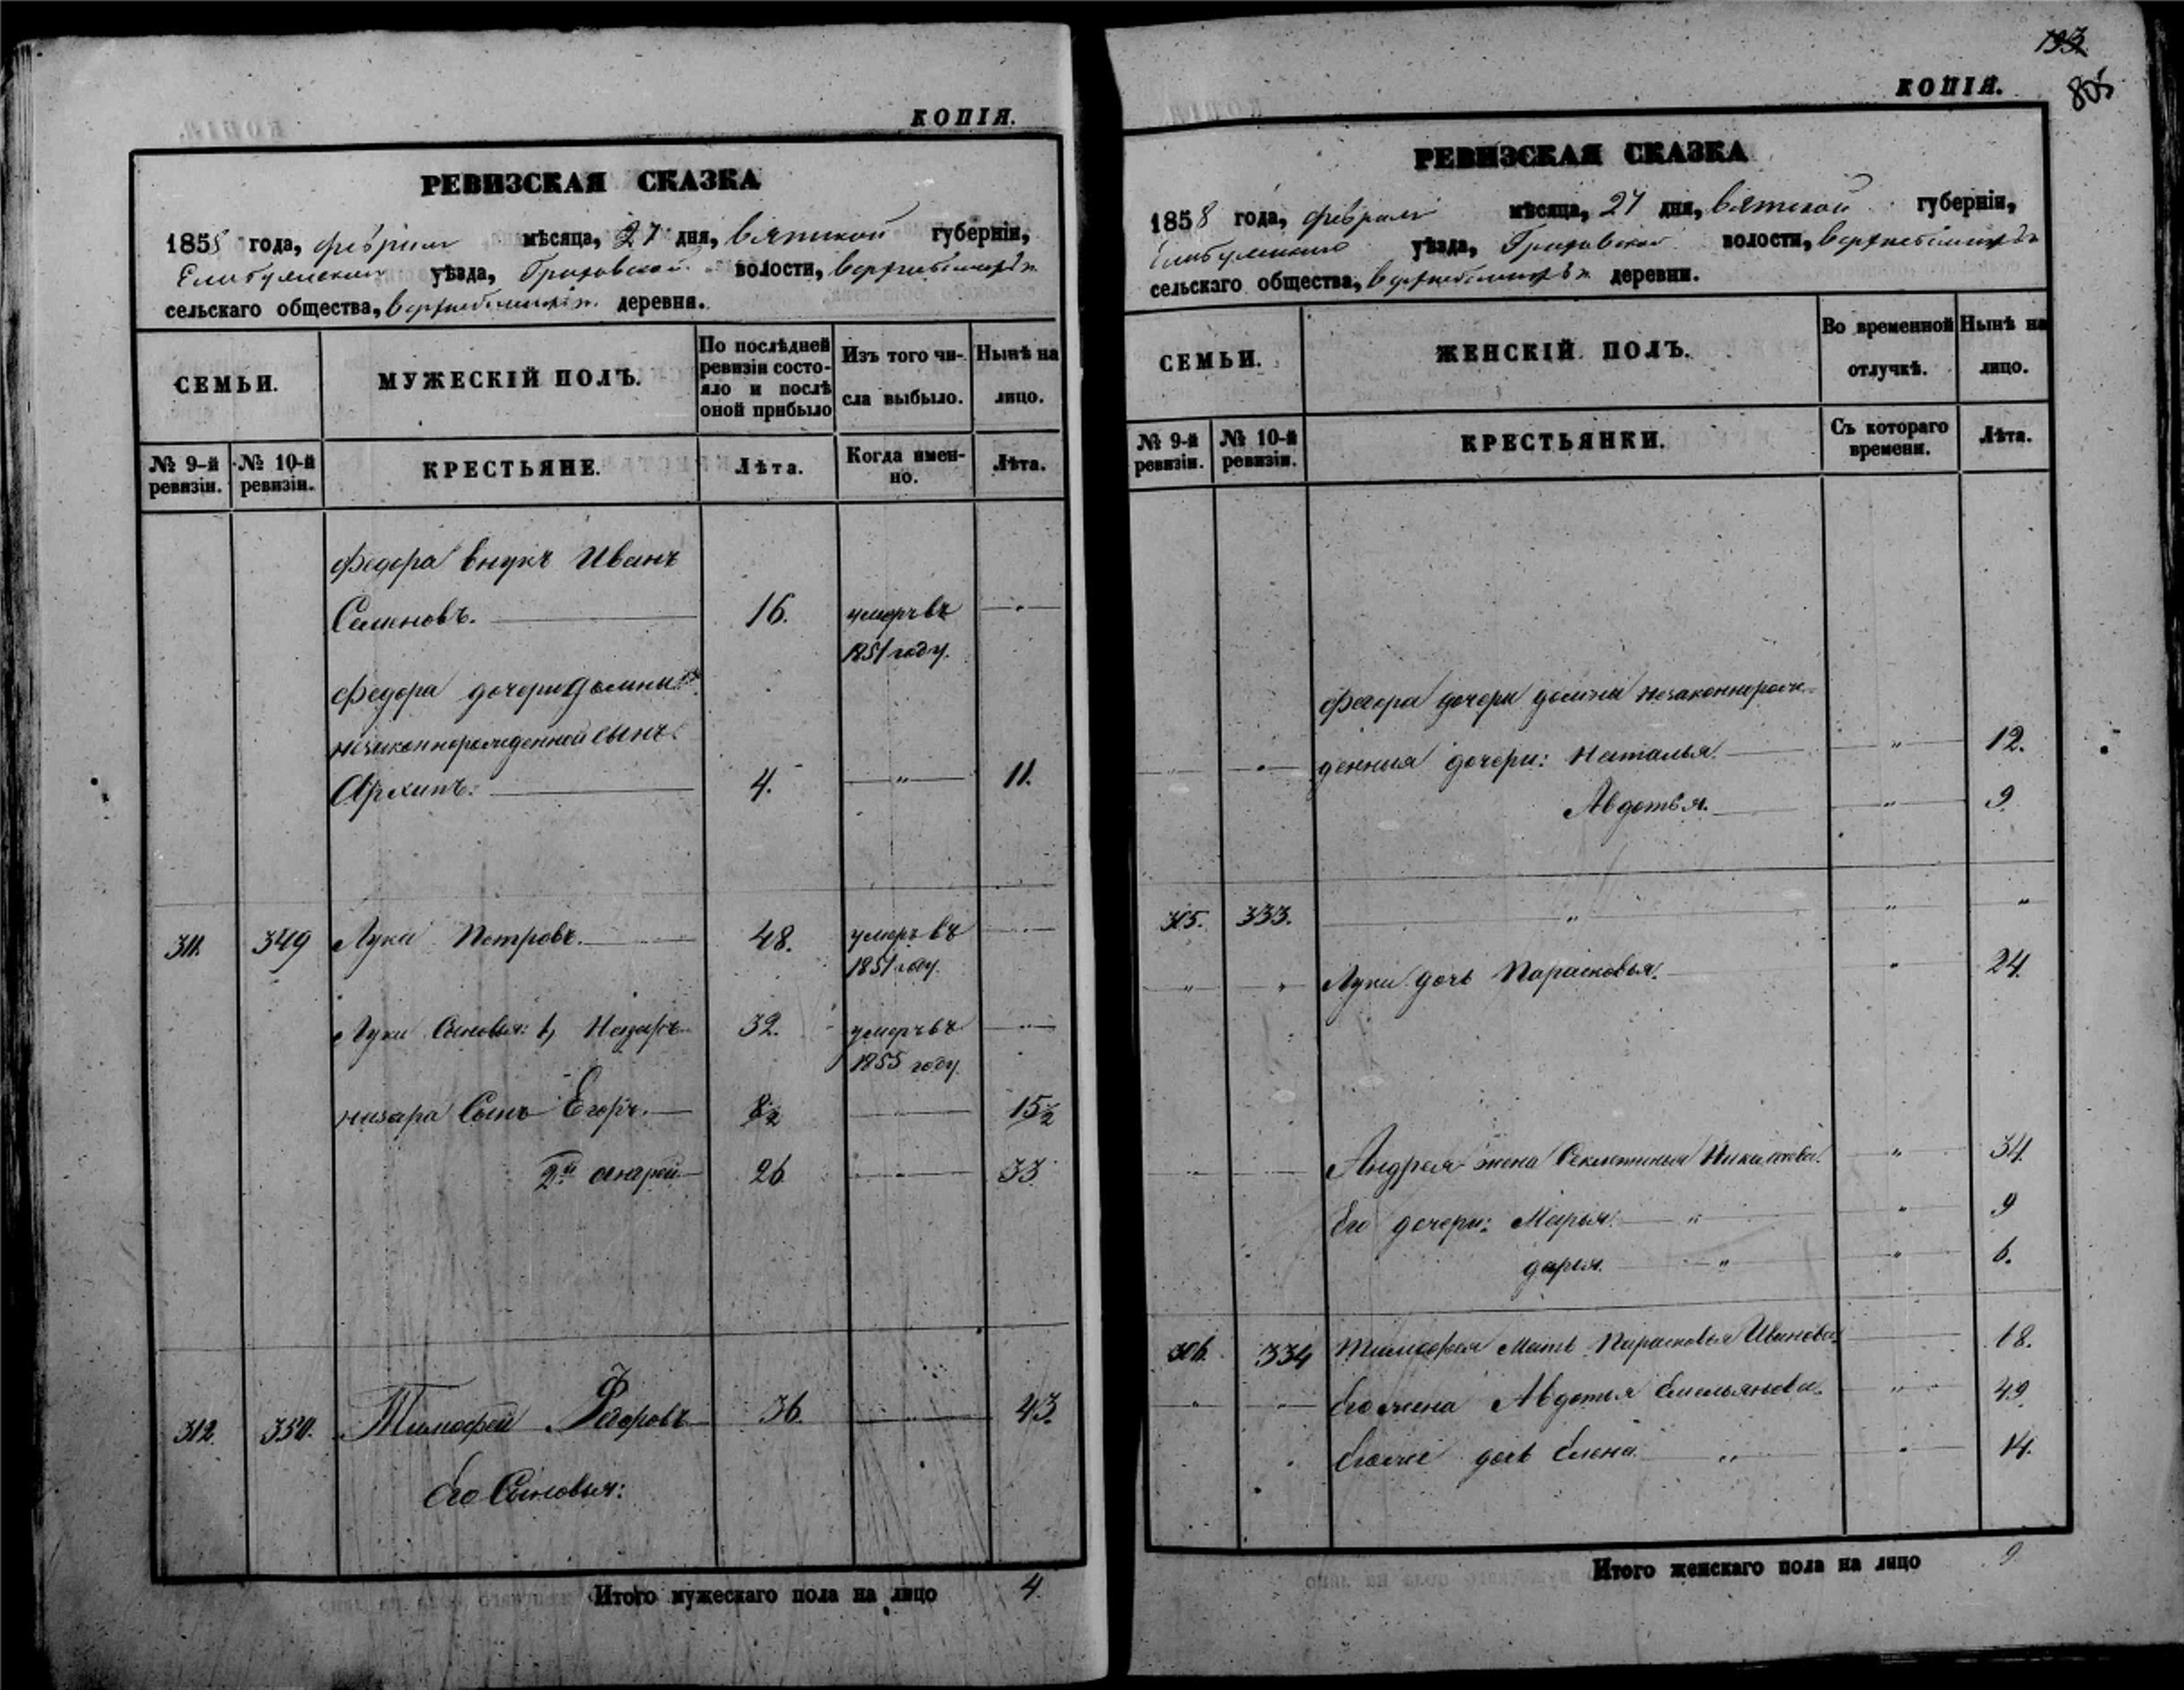 КОПІЯ.
РЕВИЗСКАЯ СКАЗКА
1858 года, февраля мѣсяца, 27 дня, Вятской губерніи,
Елабужскаго уѣзда, волости,
сельскаго общества, деревня.
СЕМЬИ.
МУЖЕСКІЙ ПОЛЪ.
По послѣдней ревизіи состояло и послѣ оной прибыло
Изъ того числа выбыло.
Нынѣ на лицо.
№ 9-й ревизіи.
№ 10-й ревизіи.
КРЕСТЬЯНЕ.
Лѣта.
Когда имен-но.
Лѣта.
Федора внукъ Иванъ
Семеновъ. 16. умеръ въ
1851 году.
Федора дочери Домны
незаконнорожденной сынъ
Архипъ. 4. " 11.
311. 349 Лука Петровъ. 48. умеръ въ
1851 году.
Луки Сыновья: 1, Назаръ 32. умеръ въ
1855 году.
Назара Сынъ Егоръ. 8½ 15½
2й Андрей 26 33
312. 350. Тимофей Федоровъ 36. 43.
Его Сыновья:
Итого мужескаго пола на лицо 4.
193
805
КОПІЯ.
РЕВИЗСКАЯ СКАЗКА
1858 года, февраля мѣсяца, 27 дня, Вятской губерніи,
Елабужскаго уѣзда, волости,
сельскаго общества, деревни.
СЕМЬИ.
ЖЕНСКІЙ ПОЛЪ.
Во временной отлучкѣ.
Нынѣ на лицо.
№ 9-й ревизіи.
№ 10-й ревизіи.
КРЕСТЬЯНКИ.
Съ котораго времени.
Лѣта.
Федора дочери Домны незаконнорож-
денныя дочери: Наталья. " 12.
Авдотья. " 9.
305. 333. " " "
Луки дочь Парасковья. " 24.
Андрея жена Секлетинья Николаева. " 34.
Его дочери: Марья. " " 9
Дарья. " " 6.
306. 334 Тимофея Мать Парасковья Иванова. 68.
Его жена Авдотья Емельянова. " 49.
Его же дочь Елена. " " 14.
Итого женскаго пола на лицо 9